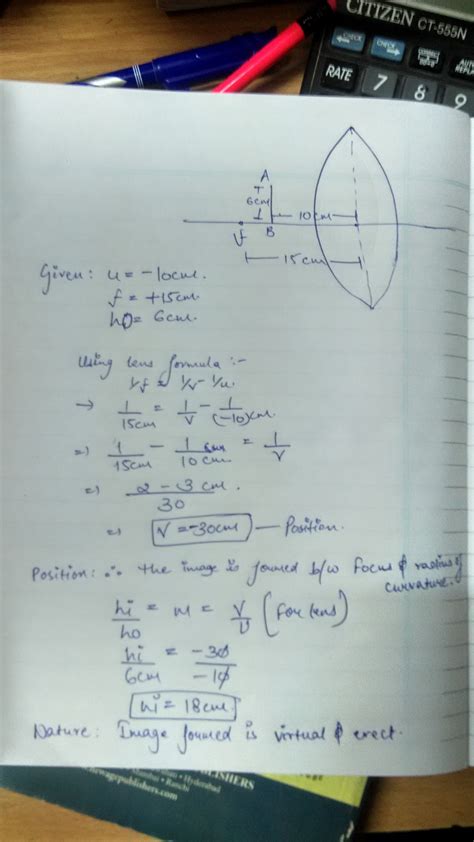 CITIZEN CT-555N
CHECK
CHECK
CORRECT
AUTO
REPLAY
RATE
7
8
9
A
6cm
10cm
f
B
15cm
Given: u = -10cm.
f = +15cm.
ho = 6cm.
Using lens formula :-
1/f = 1/v - 1/u.
→ 1/15cm = 1/v - 1/(-10)cm.
=) 1/15cm - 1/10cm = 1/v
=) 2 - 3 cm. / 30
=) v = -30cm — Position.
Position: ∴ the image is formed b/w focus & radius of
curvature.
hi/ho = m = v/u (for lens)
hi/6cm = -30/-10
hi = 18cm.
Nature: Image formed is virtual & erect.
BLISHERS
Hyderabad
Mumbai • Ranchi
newagepublishers.com